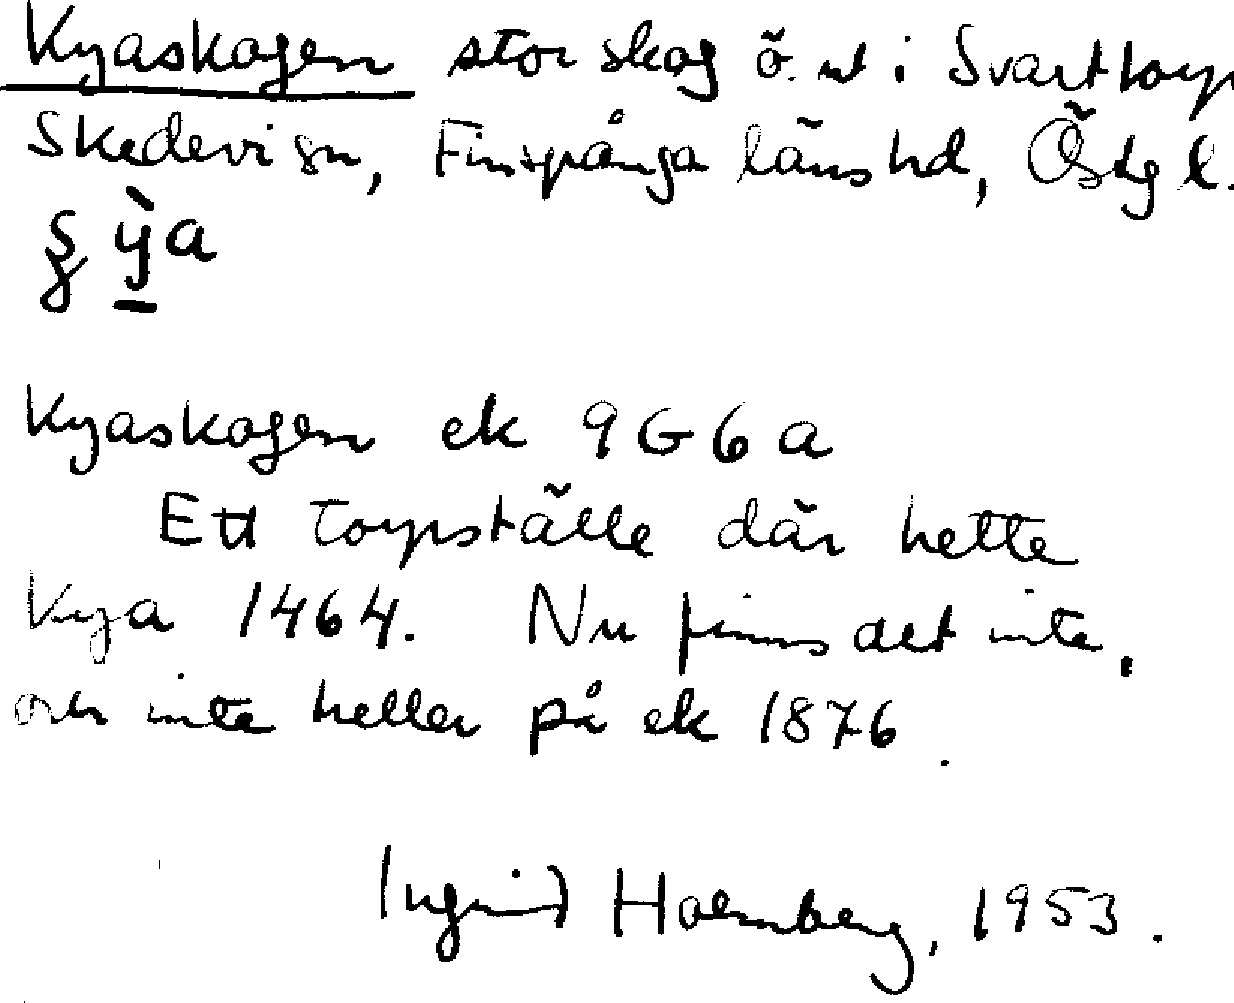 Kyaskogen stor skog ö. ut i Svarttorp
Skedevi sn, Finspånga läns hd, Östg l.
Kyaskogen ek 9G6a
Ett torpställe där hette
Kya 1464. Nu finns det inte,
och inte heller på ek 1876.
Ingrid Holmberg, 1953.